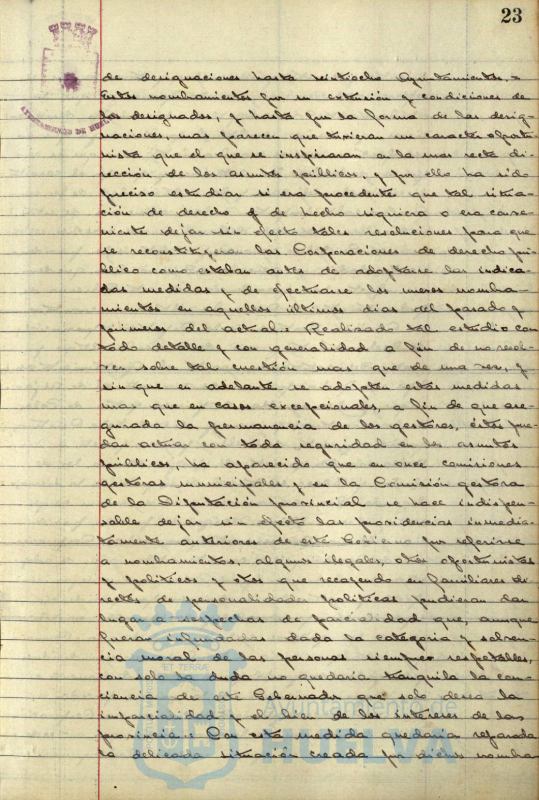 23
AYUNTAMIENTO DE HUELVA
de designaciones hasta veintiocho Ayuntamientos.=
Estos nombramientos por su extensión y condiciones de
los designados, y hasta por la forma de las desig-
naciones, mas parecen que tuvieran un caracter oportu-
nista que el que se inspiraran en la mas recta di-
rección de los asuntos públicos, y por ello ha sido
preciso estudiar si era procedente que tal situa-
ción de derecho y de hecho siguiera o era conve-
niente dejar sin efecto tales resoluciones para que
se reconstituyeran las Corporaciones de derecho pú-
blico como estaban antes de adoptarse las indica-
das medidas y de efectuarse los nuevos nombra-
mientos en aquellos últimos dias del pasado y
primeros del actual. Realizado tal estudio con
todo detalle y con generalidad a fin de no resol-
ver sobre tal cuestión mas que de una vez, y
sin que en adelante se adopten estas medidas
mas que en casos excepcionales, a fin de que ase-
gurada la permanencia de los gestores, éstos pue-
dan actuar con toda seguridad en los asuntos
públicos, ha aparecido que en once comisiones
gestoras municipales y en la Comisión gestora
de la Diputación provincial se hace indispen-
sable dejar sin efecto las providencias inmedia-
tamente anteriores de este Gobierno por referirse
a nombramientos, algunos ilegales, otros oportunistas
y políticos y otros que recayendo en familiares di-
rectos de personalidades políticas pudieran dar
lugar a sospechas de parcialidad que, aunque
fueran infundadas dada la categoria y solven-
cia moral de las personas siempre respetables,
con solo la duda no quedaria tranquila la con-
ciencia de este Gobernador que solo desea la
imparcialidad y el bien de los intereses de las
provincia. Con esta medida quedaria reparada
la delicada situación creada por dichos nombra-
ET TERRÆ
Ayuntamiento de
HUELVA